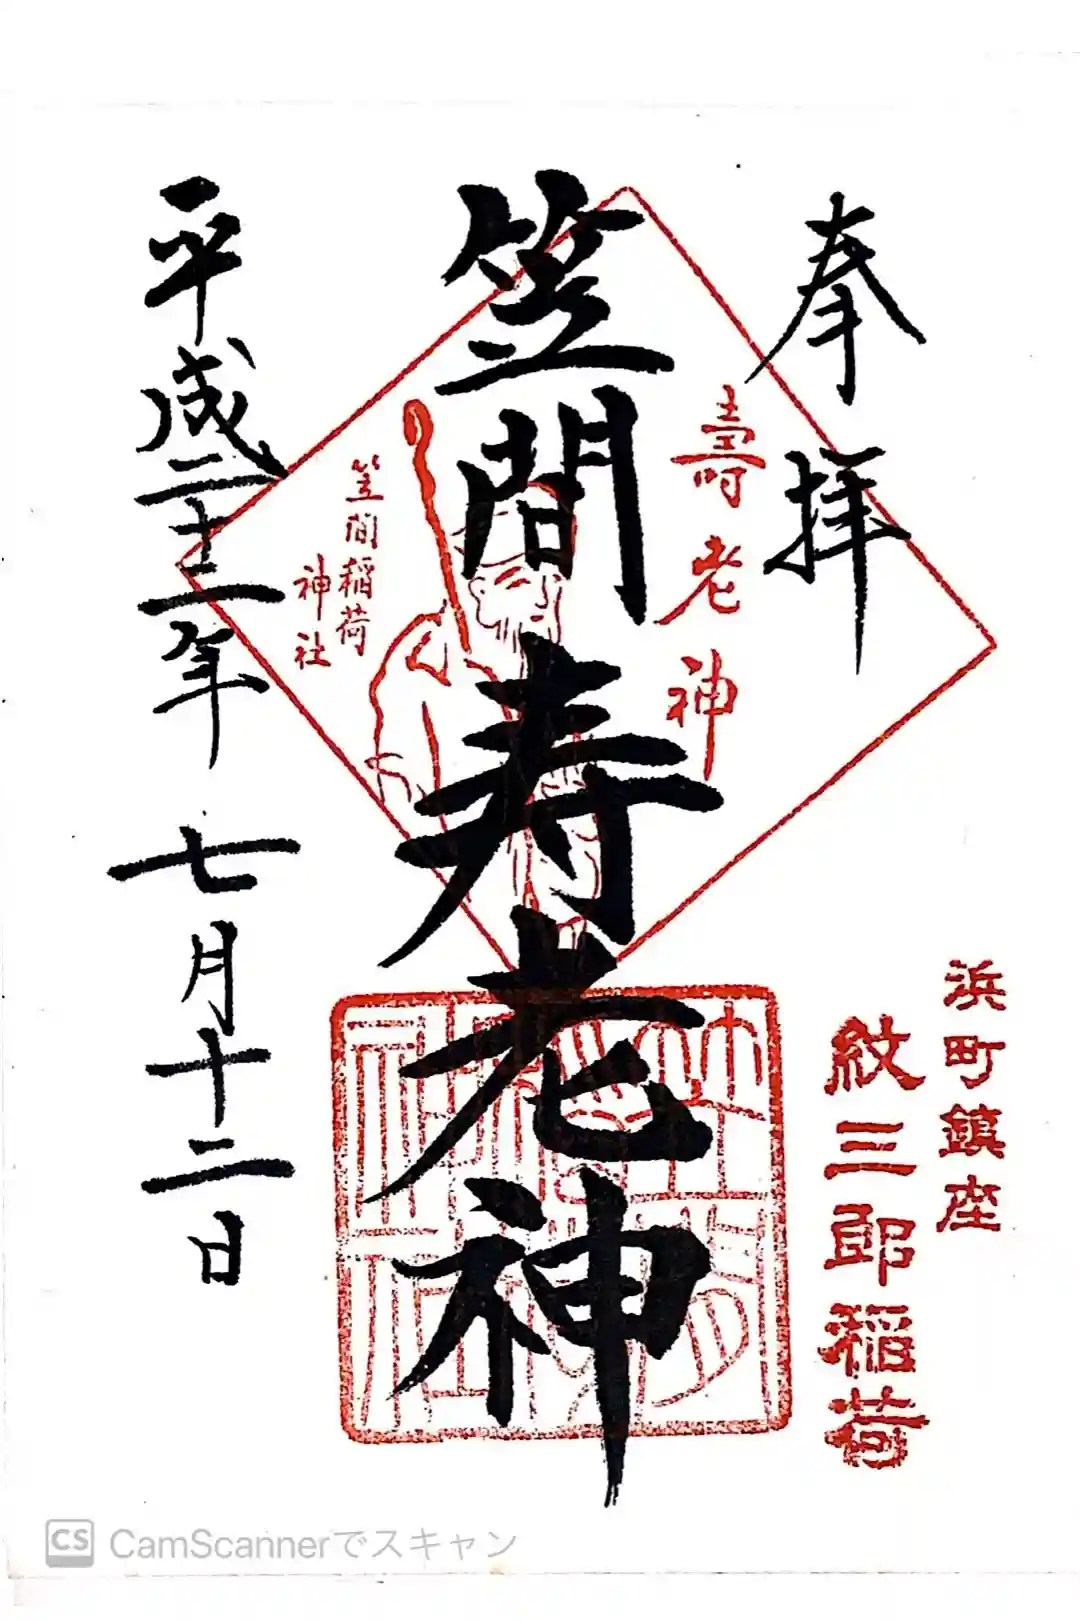 奉拝
浜町鎮座
紋三郎稲荷
壽老神
笠間寿老神
笠間稲荷
神社
平成二十二年 七月十二日
CamScannerでスキャン